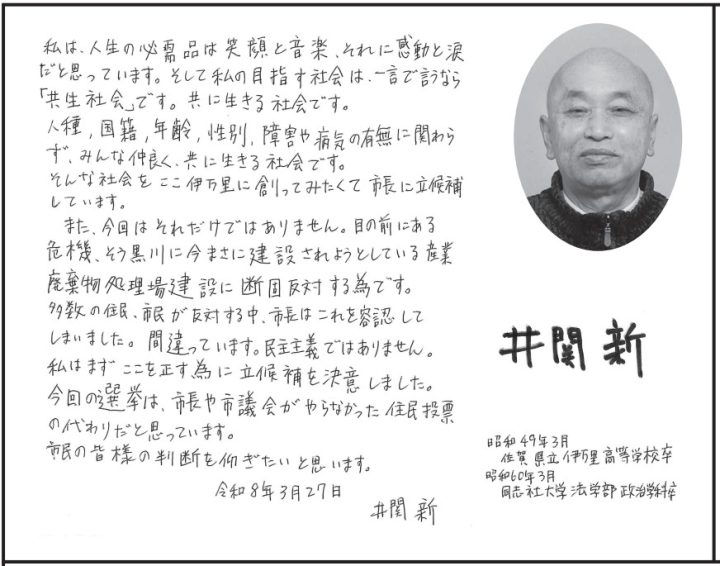 私は、人生の必需品は笑顔と音楽、それに感動と涙
だと思っています。そして私の目指す社会は、一言で言うなら
「共生社会」です。共に生きる社会です。
人種,国籍,年齢,性別,障害や病気の有無に関わら
ず、みんな仲良く、共に生きる社会です。
そんな社会をここ伊万里に創ってみたくて市長に立候補
しています。
また、今回はそれだけではありません。目の前にある
危機、そう黒川に今まさに建設されようとしている産業
廃棄物処理場建設に断固反対する為です。
多数の住民、市民が反対する中、市長はこれを容認して
しまいました。間違っています。民主主義ではありません。
私はまずここを正す為に立候補を決意しました。
今回の選挙は、市長や市議会がやらなかった住民投票
の代わりだと思っています。
市民の皆様の判断を仰ぎたいと思います。
令和8年3月27日
井関 新
井関 新
昭和49年3月
佐賀県立伊万里高等学校卒
昭和60年3月
同志社大学法学部政治学科卒